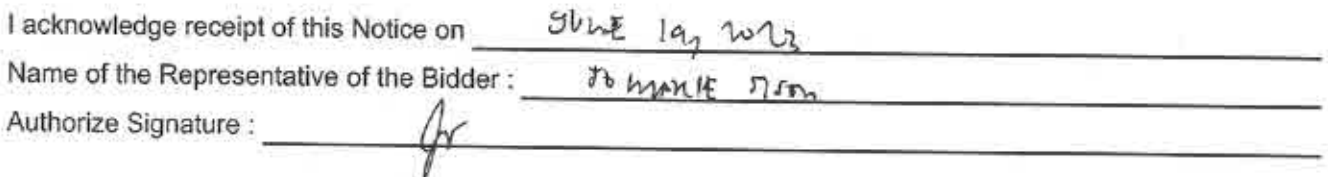 I acknowledge receipt of this Notice on JUNE 19, 2023
Name of the Representative of the Bidder :
Authorize Signature :